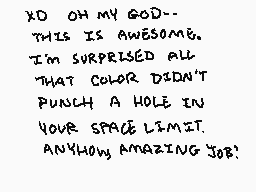 XD OH MY GOD--
THIS IS AWESOME.
I'M SURPRISED ALL
THAT COLOR DIDN'T
PUNCH A HOLE IN
YOUR SPACE LIMIT.
ANYHOW, AMAZING JOB!